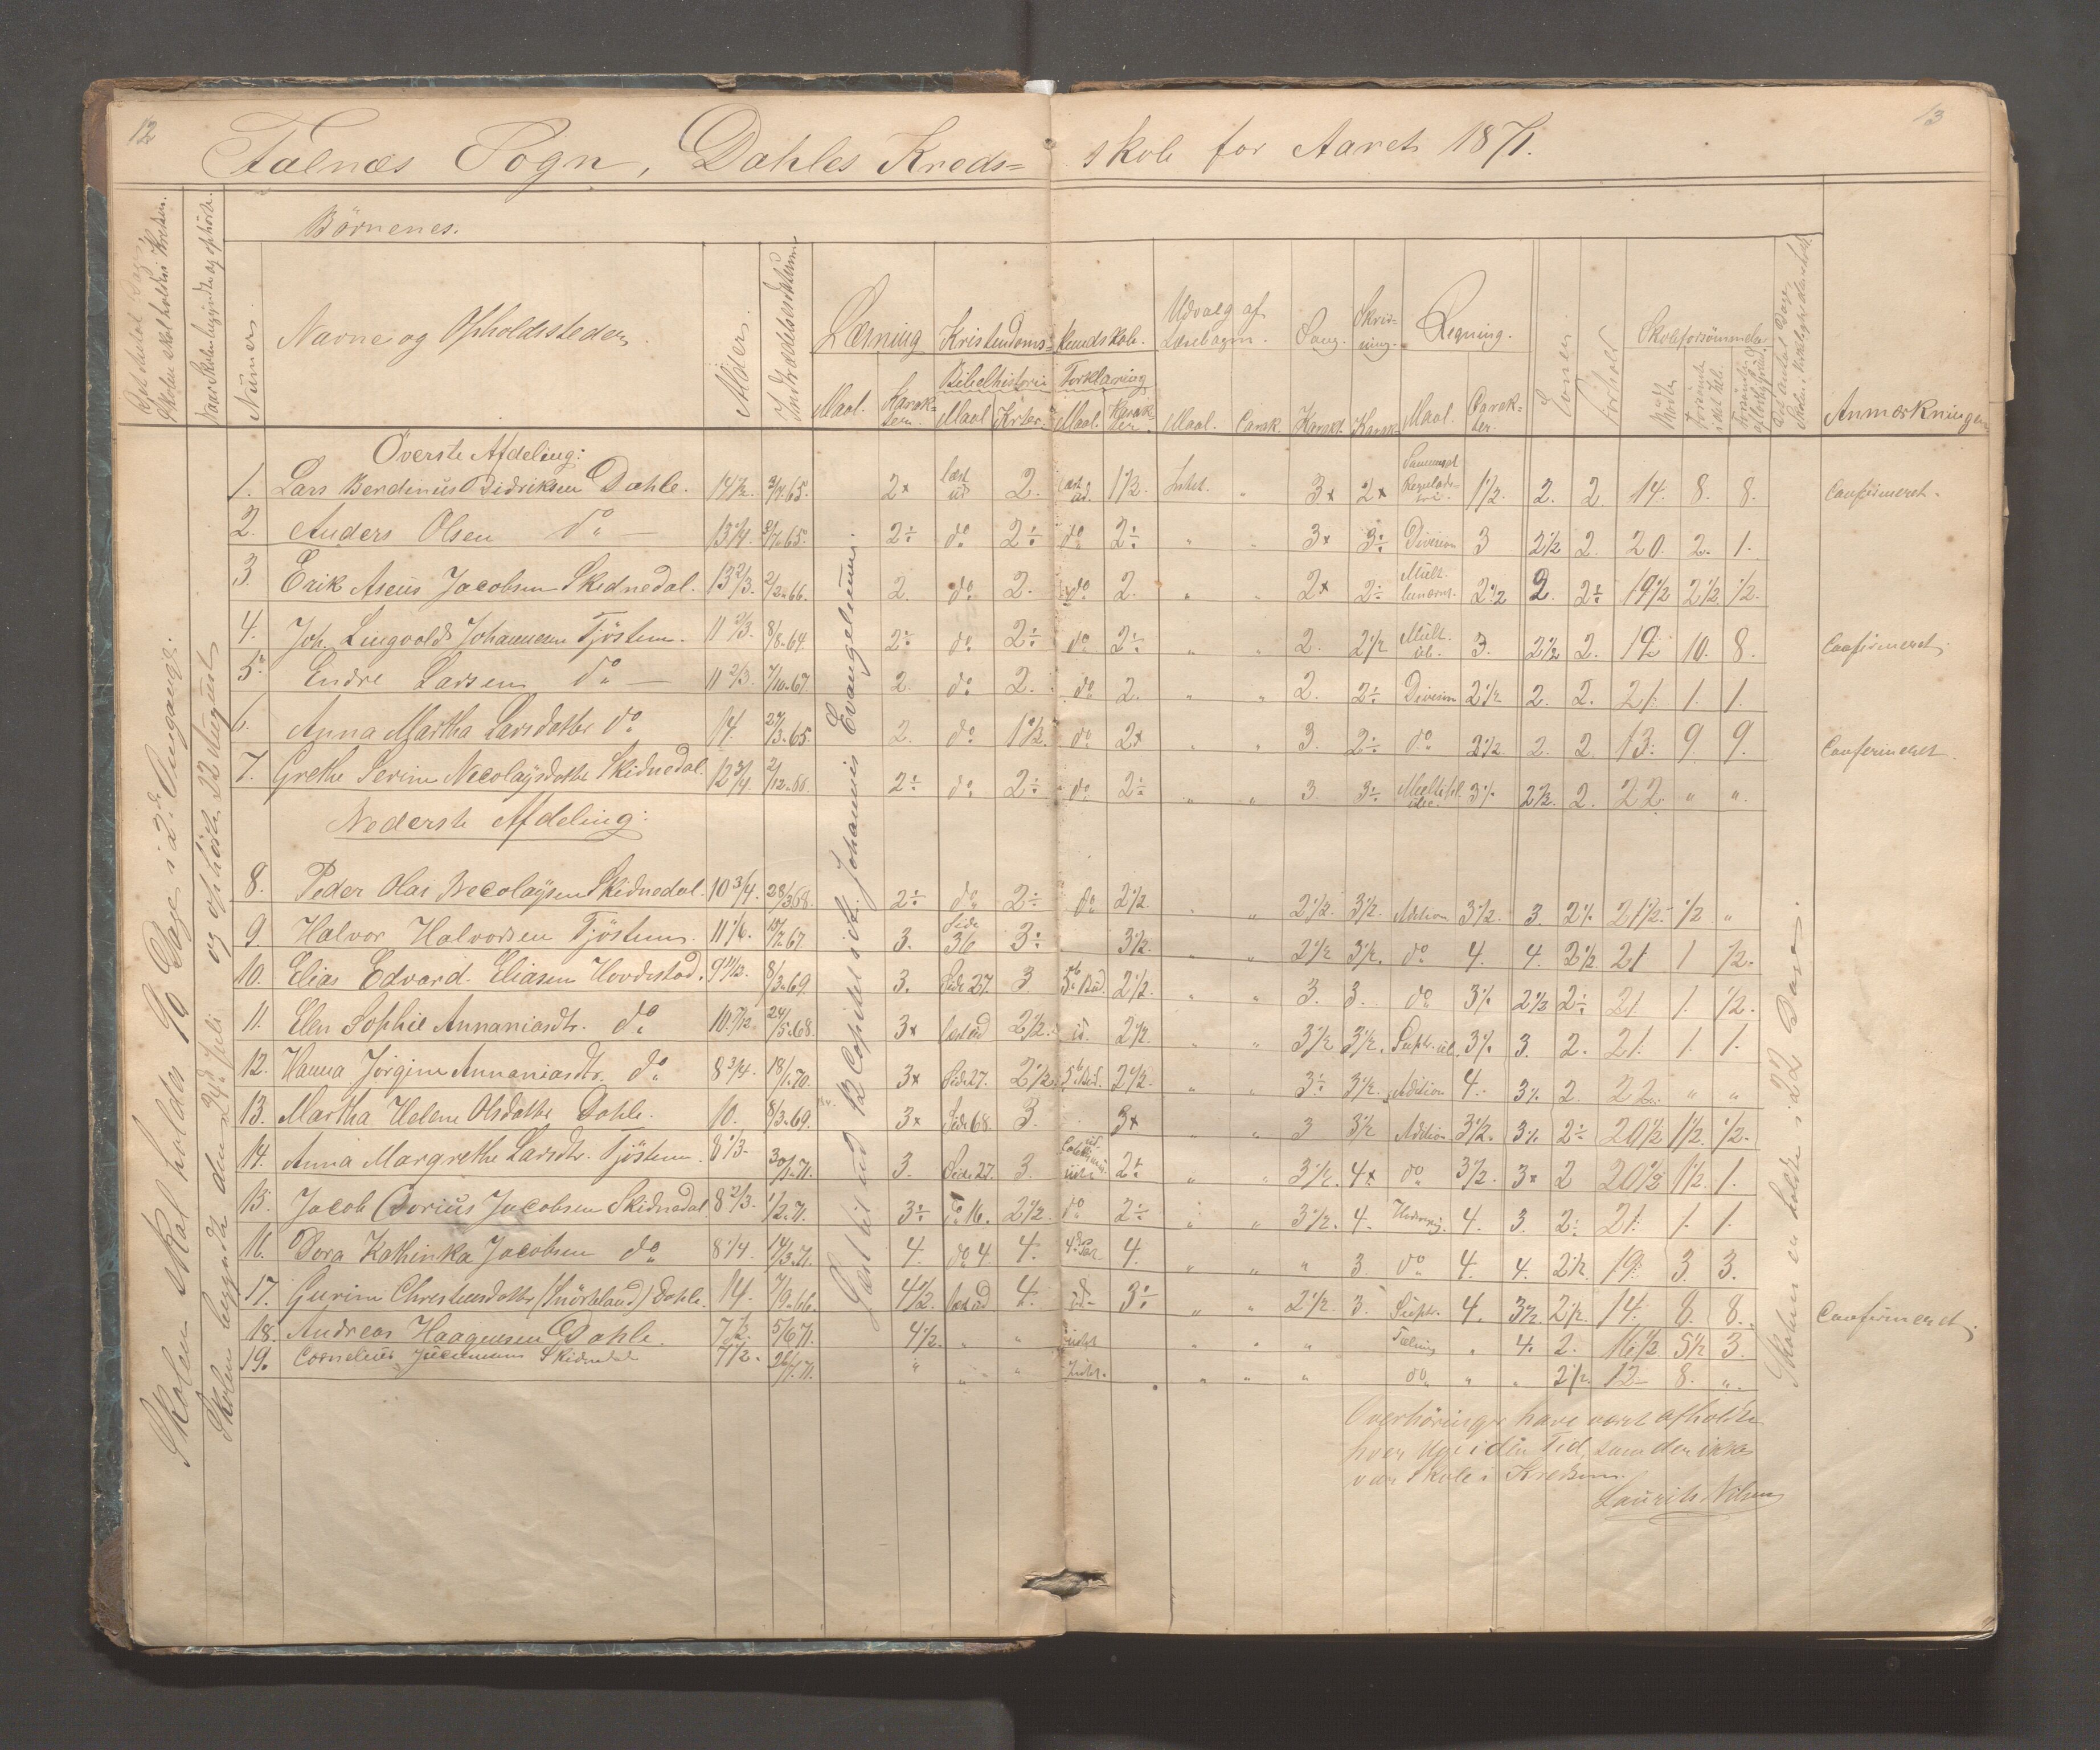 12
13
Falnæs Sogn, Dahles Kreds= skole for Aaret 1871.
Börnenes.
Numer.
Navne og Opholdssteder.
Alder.
Læsning Kristendoms= kundskab. Udvalg af Læsebogen. Sang. Skriv-ning. Regning. Evner Forhold Skoleforsömmelser
Bibelhistorie Forklaring
Maal. Karak-ter. Maal Krter. Maal. Karak-ter. Maal. Carak. Karakt. Karakt. Maal. Carak-ter. Anmærkninger
Skolen skal holdes 96 Dage i 2de Omgange.
Skolen begyndte den 24de Juli og ophörte 22 August
Læst til ud 12 Capitel i det Johannis Evangelium.
Skolen er holdt i 22 Dage.
Överste Afdeling:
1. Lars Berdinus Didriksen Dahle. 14½. 2x læst ud 2. læst ud. 1½. Intet. " 3x 2x 1½. 2. 2 14. 8. 8. Confirmeret.
2. Anders Olsen do — 13¼. 2÷ do 2÷ do 2÷ " " 3x 3÷ Division 3 2½ 2. 20. 2. 1.
3. Erik Aseus Jacobsen Skidnedal. 13⅔. 2/2.66. 2. do 2. do 2. " " 2x 2÷ 2½ 2. 2÷ 19½ 2½ ½.
4. Joh. Lingvold Johannesen Tjöstem. 11⅔. 8/8.64. 2÷ do 2÷ do 2÷ " " 2. 2½ Mult. 3. 2½ 2. 19. 10. 8. Confirmeret.
5. Endre Larsen do — 11⅔. 7/10.67. 2 do 2. do 2. " " 2. 2÷ Division 2½. 2. 2. 21. 1. 1.
6. Anna Martha Larsdatter do 14. 27/3.65. 2. do 1½. do 2x " " 3. 2÷ do 2½ 2. 2. 13. 9. 9. Confirmeret
7. Grethe Serine Necolaysdatter Skidnedal. 12¾. 2÷ do 2÷ do 2÷ " " 3. 3÷ 3½ 2½. 2. 22. " ".
Nederste Afdeling:
8. Peder Olai Necolaysen Skidnedal. 10¾. 28/3.68. 2÷ do 2÷ do 2½. " " 2½. 3½. Adition 3½. 3. 2½ 21½ ½ "
9. Halvor Halvorsen Tjöstem. 11⅙. 3. Side 36 3÷ 3½. " " 2½ 3½. do 4. 4. 2½. 21 1 ½.
10. Elias Edvard Eliasen Hovdestad. 8/3.69. 3. Side 27. 3. 5te Bud. 2½. " " 3. 3. do 3½ 2½ 2÷ 21. 1. ½.
11. Elen Sophie Annaniasdtr. do 10 7/12. 24/5.68. 3x læst ud 2½. ud. 2½. " " 3½ 3½. 3½ 3. 2. 21. 1. 1.
12. Hanna Jörgine Annaniasdtr. do 8¾. 18/1.70. 3x Side 27. 2½. 5te Bud. 2½. " " 3÷ 3½. Adition 4. 3½ 2. 22. " "
13. Martha Helene Olsdatter Dahle. 10. 8/3.69. 3x Side 68. 3. 3x " " 3 3½ Adition 3½. 3½ 2÷ 20½ 1½. ½.
14. Anna Margrethe Larsdtr. Tjöstem. 8⅓. 30/1.71. 3. Side 27. 3. 2÷ " " 3½. 4x do 3½. 3x 2 20½ 1½. 1.
15. Jacob Dorius Jacobsen Skidnedal 8⅔. 1/2.71. 3÷ do 16. 2½. do 2÷ " " 3½. 4. 4. 3. 2÷ 21. 1. 1.
16. Dora Kathinka Jacobsen do 8¼. 14/3.71. 4. do 4 4. 4. " " " 3 do 4. 4. 2½. 19. 3. 3.
17. Gurine Christensdatter Dahle. 14. 7/9.66. 4½. læst ud 4. ud 3÷ " " 2½. 3. 4. 3½. 2½. 14. 8. 8. Confirmeret.
18. Andreas Haagensen Dahle. 7½. 5/6.71. 4½. " " intet " " " Tæling " 4. 2. 16½. 5½ 3.
19. Cornelius Skidnedal 7½. 26/1.71. " " " Intet. " " " do " " 2½. 12 8. ".
Overhöringer have været afholdte
hver Uge i den Tid, som der ikke
var Skole i Kredsen.
Laurits Nilsen